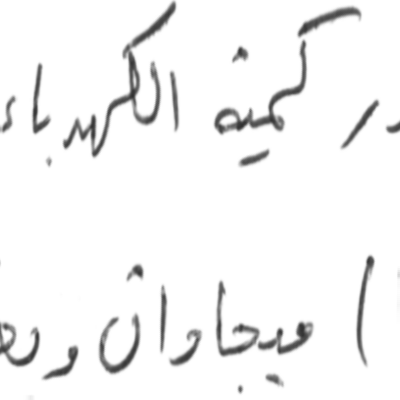 كمية الكهرباء
) ميجاوات